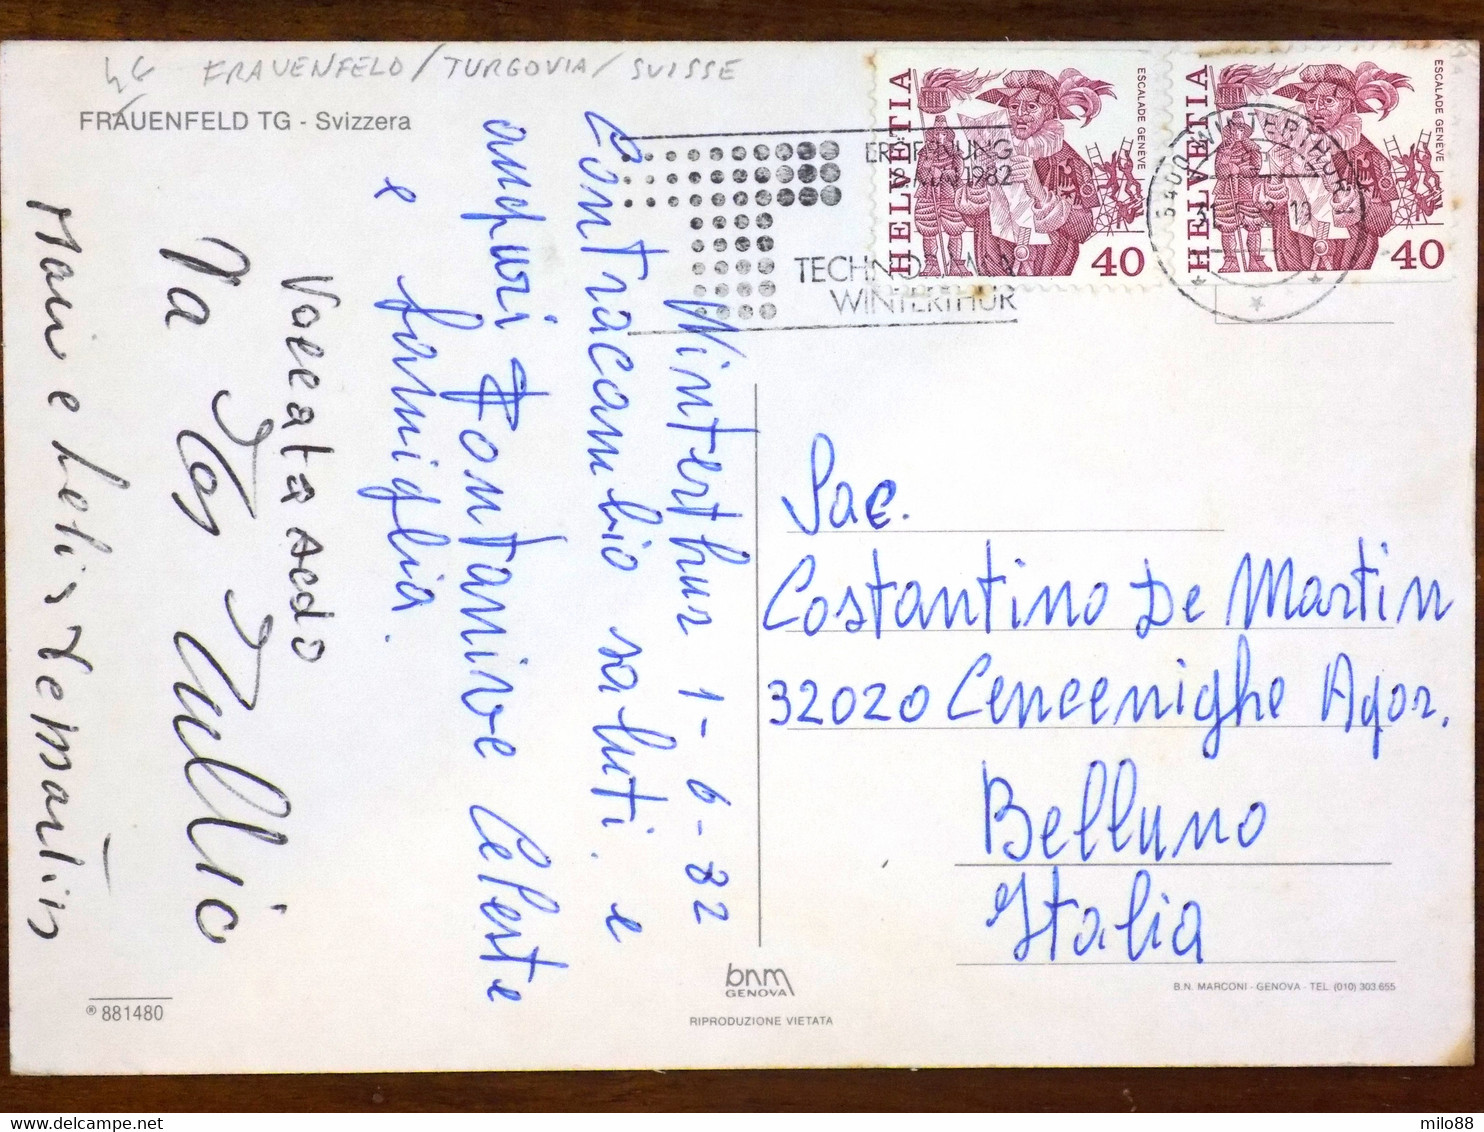 FRAUENFELD/TURGOVIA/SUISSE
FRAUENFELD TG - Svizzera
Winterthur 1-6-82
Contraccambio saluti. e
auguri Fontanive Celeste
e famiglia.
Da
Tullio
HELVETIA
ESCALADE GENEVE
40
HELVETIA
ESCALADE GENEVE
40
ERÖFFNUNG
1982
TECHNORAMA
WINTERTHUR
8400 WINTERTHUR 1
Sac.
Costantino De Martin
32020 Cencenighe Agor.
Belluno
Italia
bnm
GENOVA
RIPRODUZIONE VIETATA
B.N. MARCONI - GENOVA - TEL. (010) 303.655
® 881480
milo88